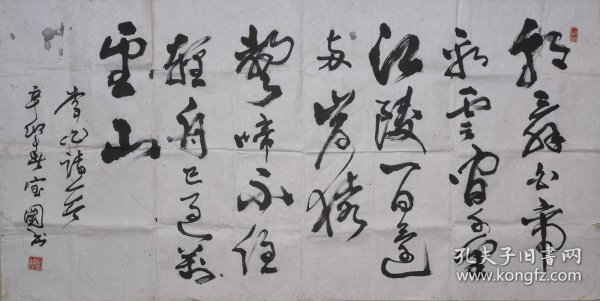 朝辞白帝
彩雲间千里
江陵一日還
两岸猿
聲啼不住
輕舟已過萬
重山
李白詩一首
辛卯春宝國书
孔夫子旧书网
www.kongfz.com